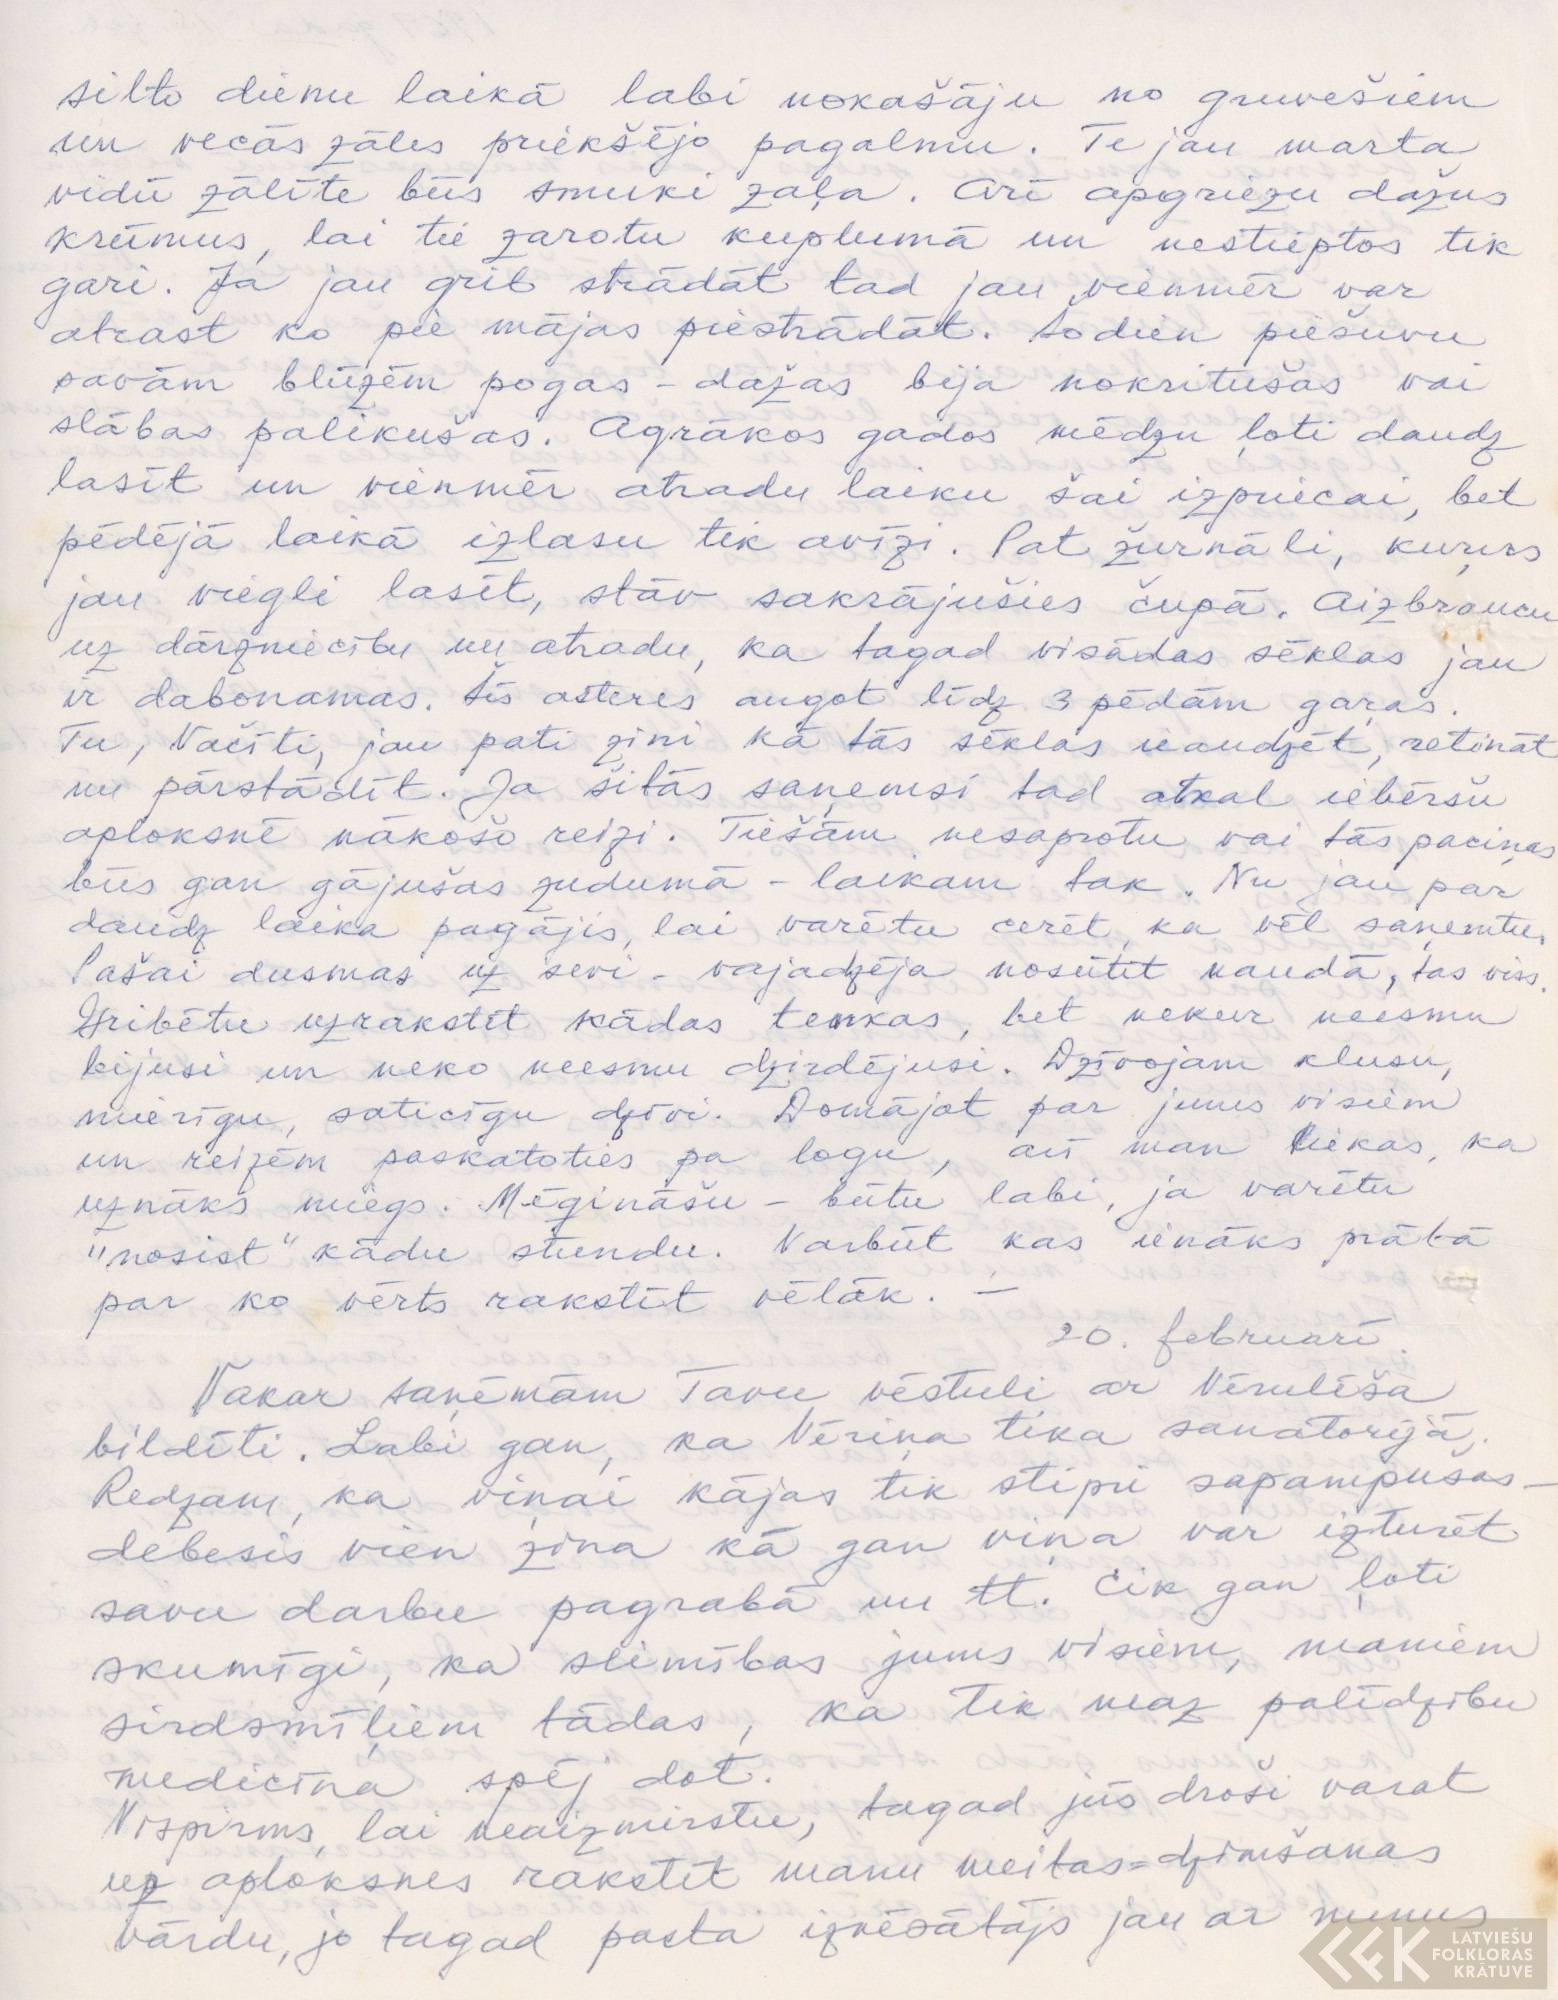 silto dienu laikā labi nokašāju no gruvešiem
un vecās zāles priekšējo pagalmu. Te jau marta
vidū zālīte būs smuki zaļa. Arī apgriezu dažus
krūmus, lai tie zarotu kuplumā un nestieptos tik
gari. Ja jau grib strādāt tad jau vienmēr var
atrast ko pie mājas piestrādāt. Šodien piešuvu
savām blūzēm pogas – dažas bija nokritušas vai
slābas palikušas. Agrākos gados mēdzu ļoti daudz
lasīt un vienmēr atradu laiku šai izpriecai, bet
pēdējā laikā izlasu tik avīzi. Pat žurnāli, kuŗus
jau viegli lasīt, stāv sakrājušies čupā. Aizbraucu
uz dārzniecību un atradu, ka tagad visādas sēklas jau
ir dabonamas. Šīs asteres augot līdz 3 pēdām gaŗas.
Tu, Vačīti, jau pati zini kā tās sēklas ieaudzēt, retināt
un pārstādīt. Ja šitās saņemsi tad atkal iebēršu
aploksnē nākošo reizi. Tiešām nesaprotu vai tās paciņas
būs gan gājušas zudumā – laikam tak. Nu jau par
daudz laika pagājis, lai varētu cerēt, ka vēl saņemtu.
Pašai dusmas uz sevi – vajadzēja nosūtīt naudā, tas viss.
Gribētu uzrakstīt kādas tenkas, bet nekur neesmu
bijusi un neko neesmu dzirdējusi. Dzīvojam klusu,
mierīgu, saticīgu dzīvi. Domājot par jums visiem
un reizēm paskatoties pa logu, arī man liekas, ka
uznāks miegs. Mēģināšu – būtu labi, ja varētu
"nosist" kādu stundu. Varbūt kas ienāks prātā
par ko vērts rakstīt vēlāk. –
20. februārī.
Vakar saņēmām Tavu vēstuli ar Vērulīša
bildīti. Labi gan, ka Vēriņa tika sanatorijā.
Redzam, ka viņai kājas tik stipri sapampušas –
debesis vien zina kā gan viņa var izturēt
savu darbu pagrabā un tt. Cik gan ļoti
skumīgi, ka slimības jums visiem, maniem
sirdsmīļiem tādas, ka tik maz palīdzību
medicīna spēj dot.
Vispirms, lai neaizmirstu, tagad jūs droši varat
uz aploksnes rakstīt manu meitas=dzimšanas
vārdu, jo tagad pasta iznēsātājs jau ar mums
LATVIEŠU
FOLKLORAS
KRĀTUVE